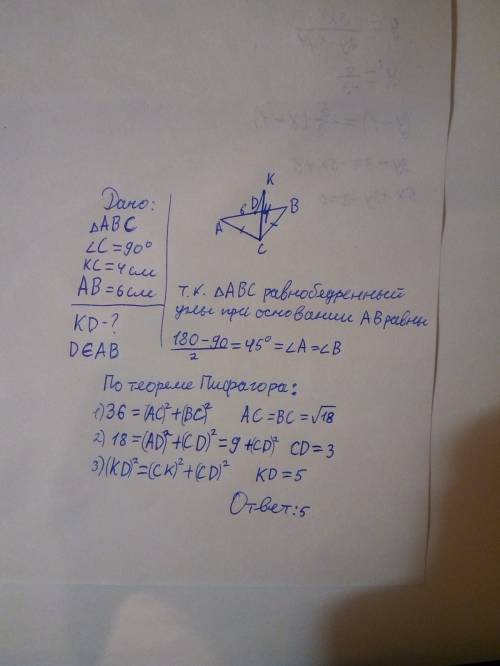 Дано:
△ABC
∠C=90°
KC=4см
AB=6см
KD-?
D∈AB
K
D
B
6
4
A
C
т.к. △ABC равнобедренный
углы при основании AB равны
180-90/2=45°=∠A=∠B
По теореме Пифагора:
1) 36=(AC)²+(BC)² AC=BC=√18
2) 18=(AD)²+(CD)²=9+(CD)² CD=3
3) (KD)²=(CK)²+(CD)² KD=5
Ответ:5